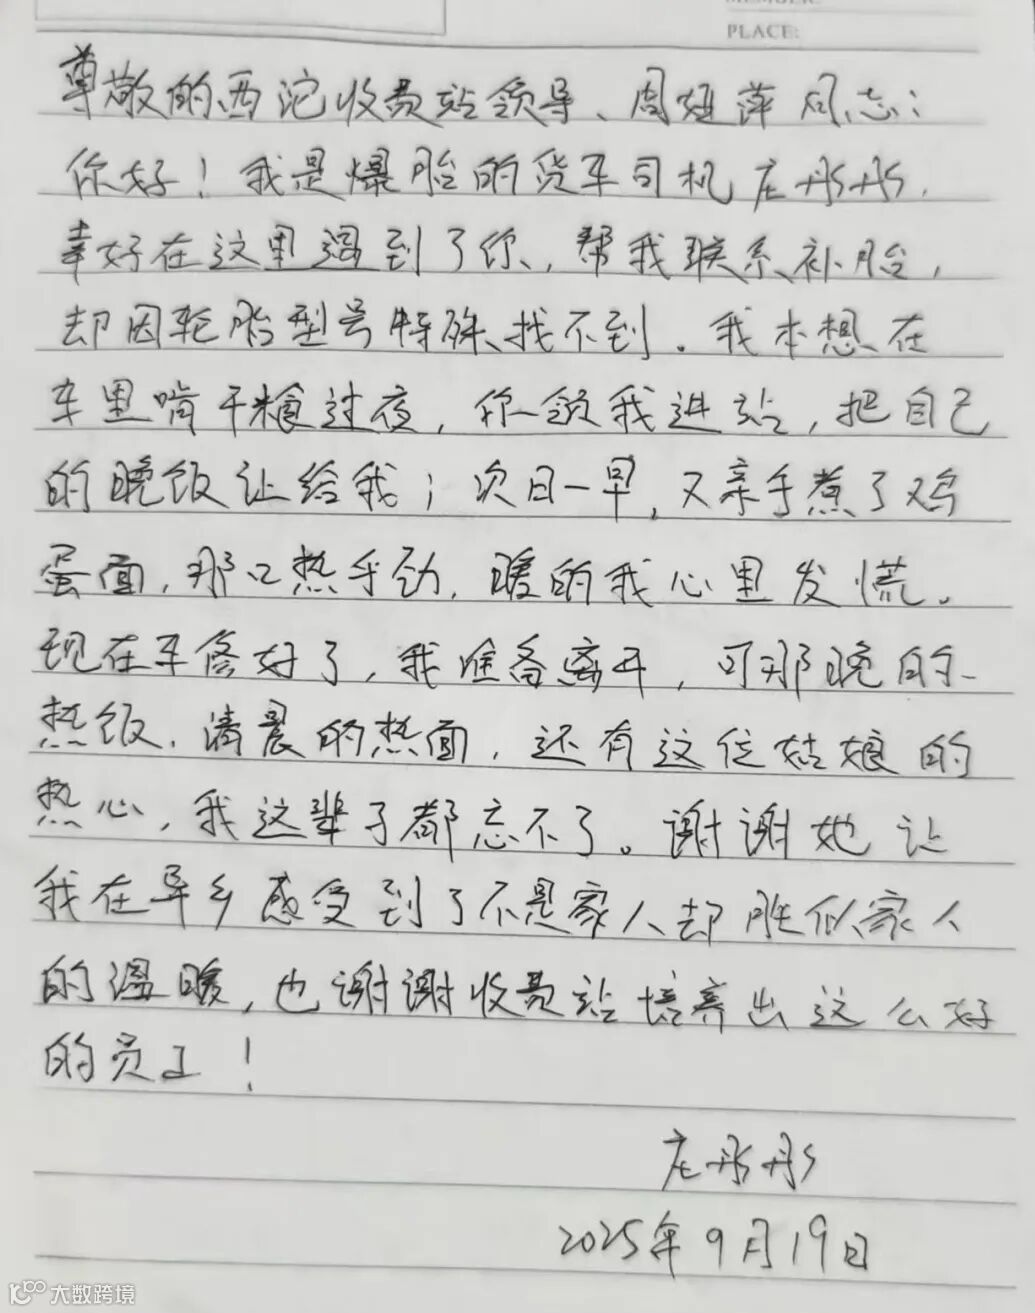 PLACE:
尊敬的西沱收费站领导、周妞萍同志:
你好!我是爆胎的货车司机庄彤彤,
幸好在这里遇到了你,帮我联系补胎,
却因轮胎型号特殊找不到。我本想在
车里啃干粮过夜,你领我进站,把自己
的晚饭让给我;次日一早,又亲手煮了鸡
蛋面,那口热乎劲,暖的我心里发慌。
现在车修好了,我准备离开,可那晚的
热饭、清晨的热面,还有这位姑娘的
热心,我这辈子都忘不了。谢谢她让
我在异乡感受到了不是家人却胜似家人
的温暖,也谢谢收费站培养出这么好
的员工!
庄彤彤
2025年9月19日
大数跨境